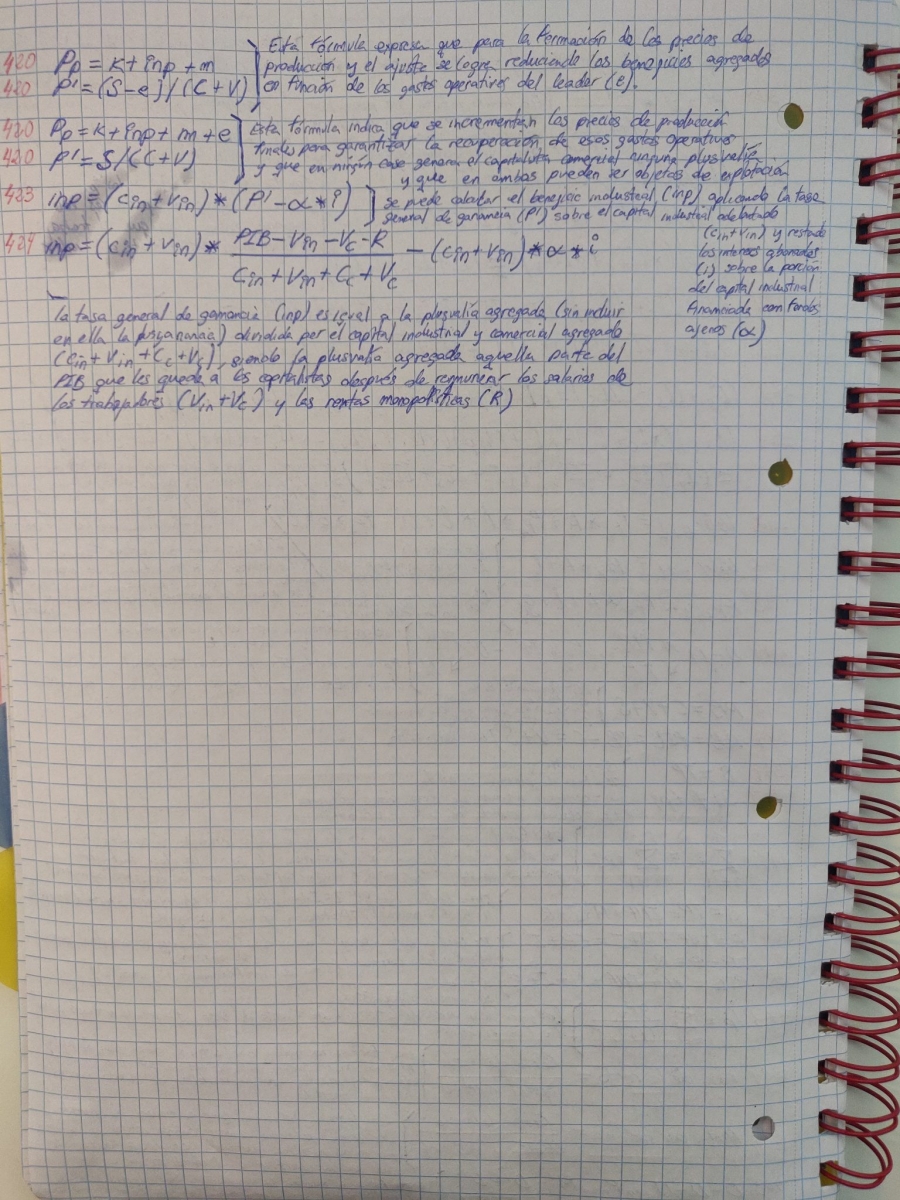 420 Pp = K + inp + m
420 P' = (S-e) / (C+V)
Esta fórmula expresa que para la formación de los precios de
producción y el ajuste se logra reduciendo los beneficios agregados
en función de los gastos operativos del leader (e).
420 Pp = K + inp + m + e
420 P' = S/(C+V)
Esta fórmula indica que se incrementan los precios de producción
finales para garantizar la recuperación de esos gastos operativos
y que en ningún caso genera el capitalista comercial ninguna plusvalía
y que en ambas pueden ser objetos de explotación
423 inp = (cin + vin) * (P' - α * i)
se puede calcular el beneficio industrial (inp) aplicando la tasa
general de ganancia (P') sobre el capital industrial adelantado
(cin + vin) y restado
los intereses abonados
(i) sobre la porción
del capital industrial
financiada con fondos
ajenos (α)
424 inp = (cin + vin) * PIB - Vin - Vc - R / Cin + Vin + Cc + Vc - (cin + vin) * α * i
la tasa general de ganancia (inp) es igual a la plusvalía agregada (sin incluir
en ella la) dividida por el capital industrial y comercial agregado
(Cin + Vin + Cc + Vc), siendo la plusvalía agregada aquella parte del
PIB que les queda a los capitalistas después de remunerar los salarios de
los trabajadores (Vin + Vc) y las rentas monopolísticas (R)